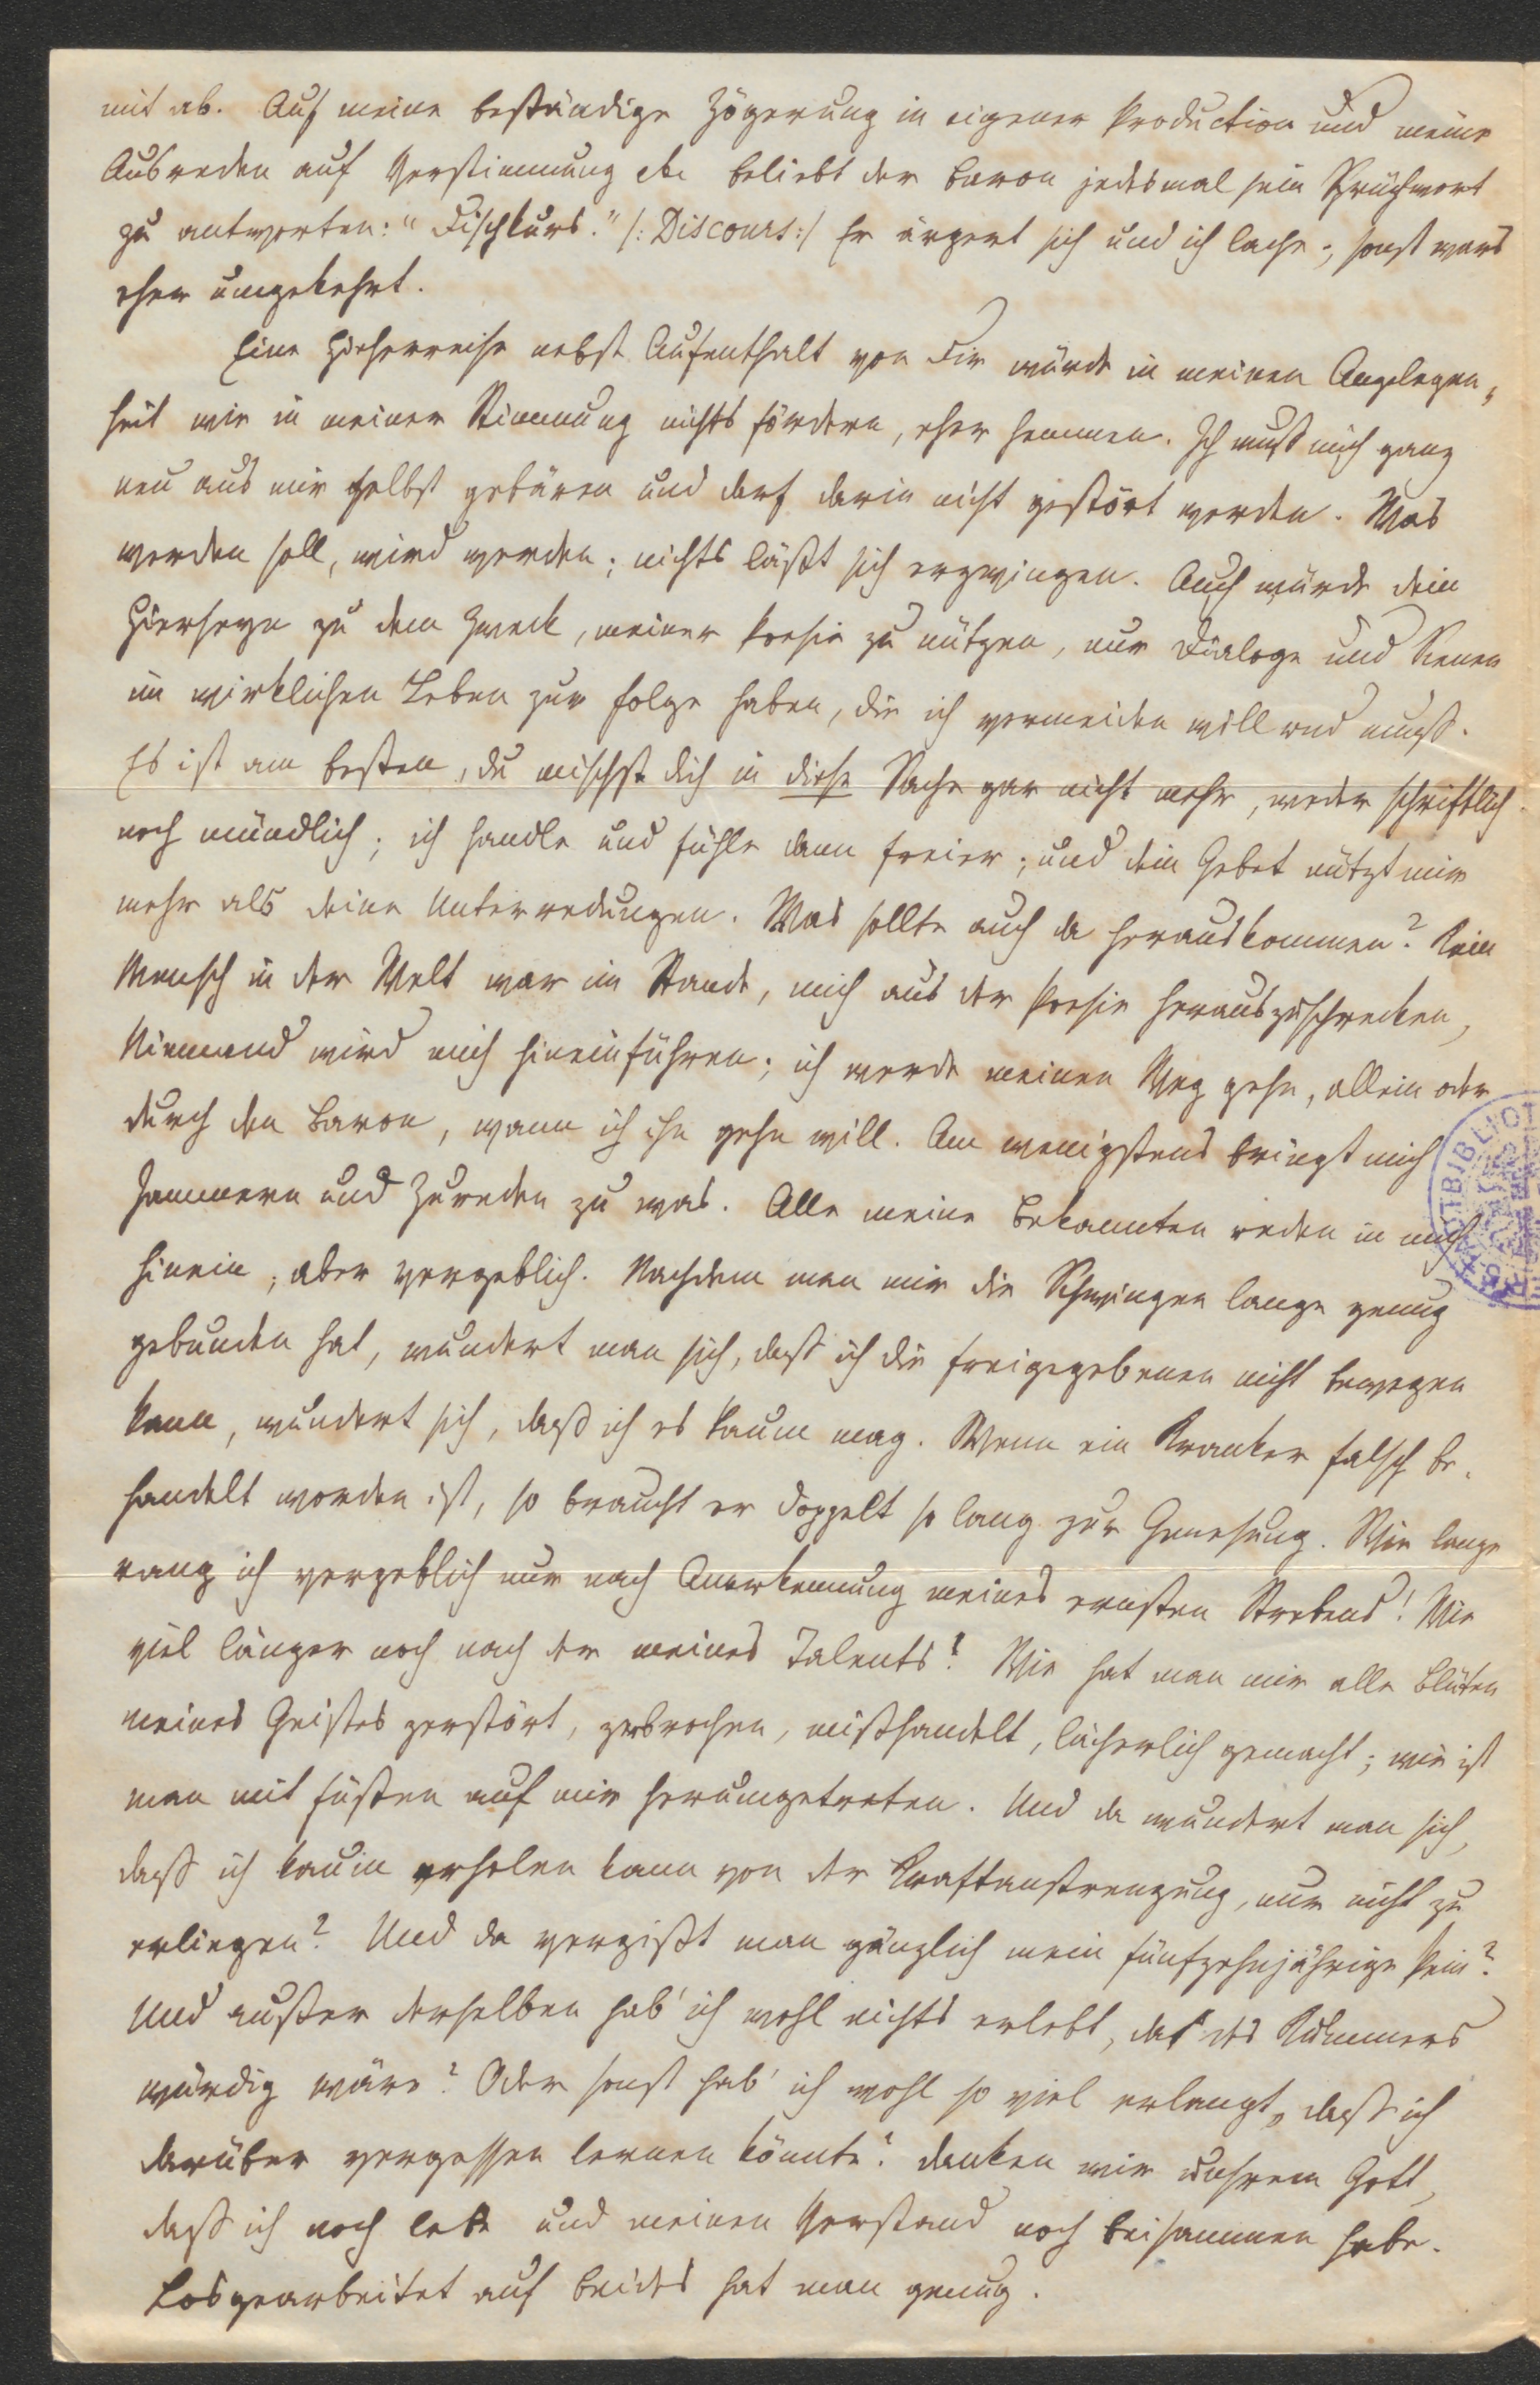 mit ab. Auf meine beständige Zögerung in eigener Production und meine
Ausreden auf Verstimmung etc beliebt der Baron jedesmal sein Sprüchwort
zu antworten: "Dischkurs." /: Discours :/ Er ärgert sich und ich lache; sonst wars
eher umgekehrt.
Eine Hieherreise nebst Aufenthalt von Dir würde in meinen Angelegen„
heit wie in meiner Stimmung nichts fördern, eher hemmen. Ich muß mich ganz
neu aus mir selbst gebären und darf darin nicht gestört werden. Was
werden soll, wird werden; nichts läßt sich erzwingen. Auch würde dein
Hierseyn zu dem Zweck, meiner Poesie zu nützen, nur Dialoge und Scenen
im wirklichen Leben zur Folge haben, die ich vermeiden will und muß.
Es ist am besten, du mischst dich in diese Sache gar nicht mehr, weder schriftlich
noch mündlich; ich handle und fühle dann freier; und dein Gebet nützt mir
mehr als deine Unterredungen. Was sollte auch da herauskommen? Kein
Mensch in der Welt war im Stande, mich aus der Poesie herauszuschrecken,
Niemand wird mich hineinführen; ich werde meinen Weg gehn, allein oder
durch den Baron, wann ich ihn gehn will. Am wenigstens bringt mich
Jammern und Zureden zu was. Alle meine Bekannten reden in mich
hinein, aber vergeblich. Nachdem man mir die Schwingen lange genug
gebunden hat, wundert man sich, daß ich die freigegebenen nicht bewegen
kann, wundert sich, daß ich es kaum mag. Wenn ein Kranker falsch be„
handelt worden ist, so braucht er doppelt so lang zur Genesung. Wie lange
rang ich vergeblich nur nach Anerkennung meines ernsten Strebens! Wie
viel länger noch nach der meines Talents! Wie hat man mir alle Blüten
meines Geistes zerstört, zerbrochen, mißhandelt, lächerlich gemacht; wie ist
man mit Füßen auf mir herumgetreten. Und da wundert man sich,
daß ich kaum erholen kann von der Kraftanstrengung, nur nicht zu
erliegen? Und da vergißt man gänzlich mein fünfzehnjährige Pein?
Und außer derselben hab' ich wohl nichts erlebt, das des Kummers
würdig wäre? Oder sonst hab' ich wohl so viel erlangt, daß ich
darüber vergessen lernen könnte? danken wir unsrem Gott,
daß ich noch lebe und meinen Verstand noch beisammen habe.
Losgearbeitet auf beides hat man genug.